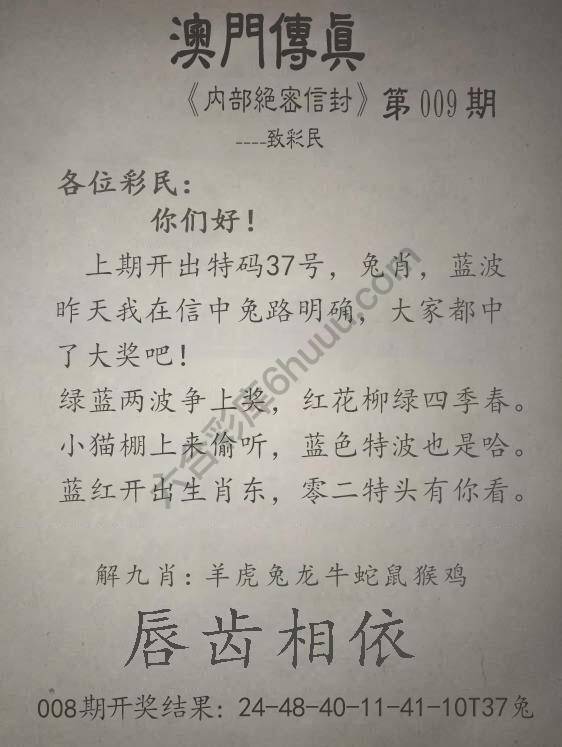 澳門傳眞
《内部絕密信封》第009期
----致彩民
各位彩民：
你们好！
上期开出特码37号，兔肖，蓝波
昨天我在信中兔路明确，大家都中
了大奖吧！
绿蓝两波争上奖，红花柳绿四季春。
小猫棚上来偷听，蓝色特波也是哈。
蓝红开出生肖东，零二特头有你看。
解九肖：羊虎兔龙牛蛇鼠猴鸡
唇齿相依
008期开奖结果：24-48-40-11-41-10T37兔
六合彩库6huuu.com